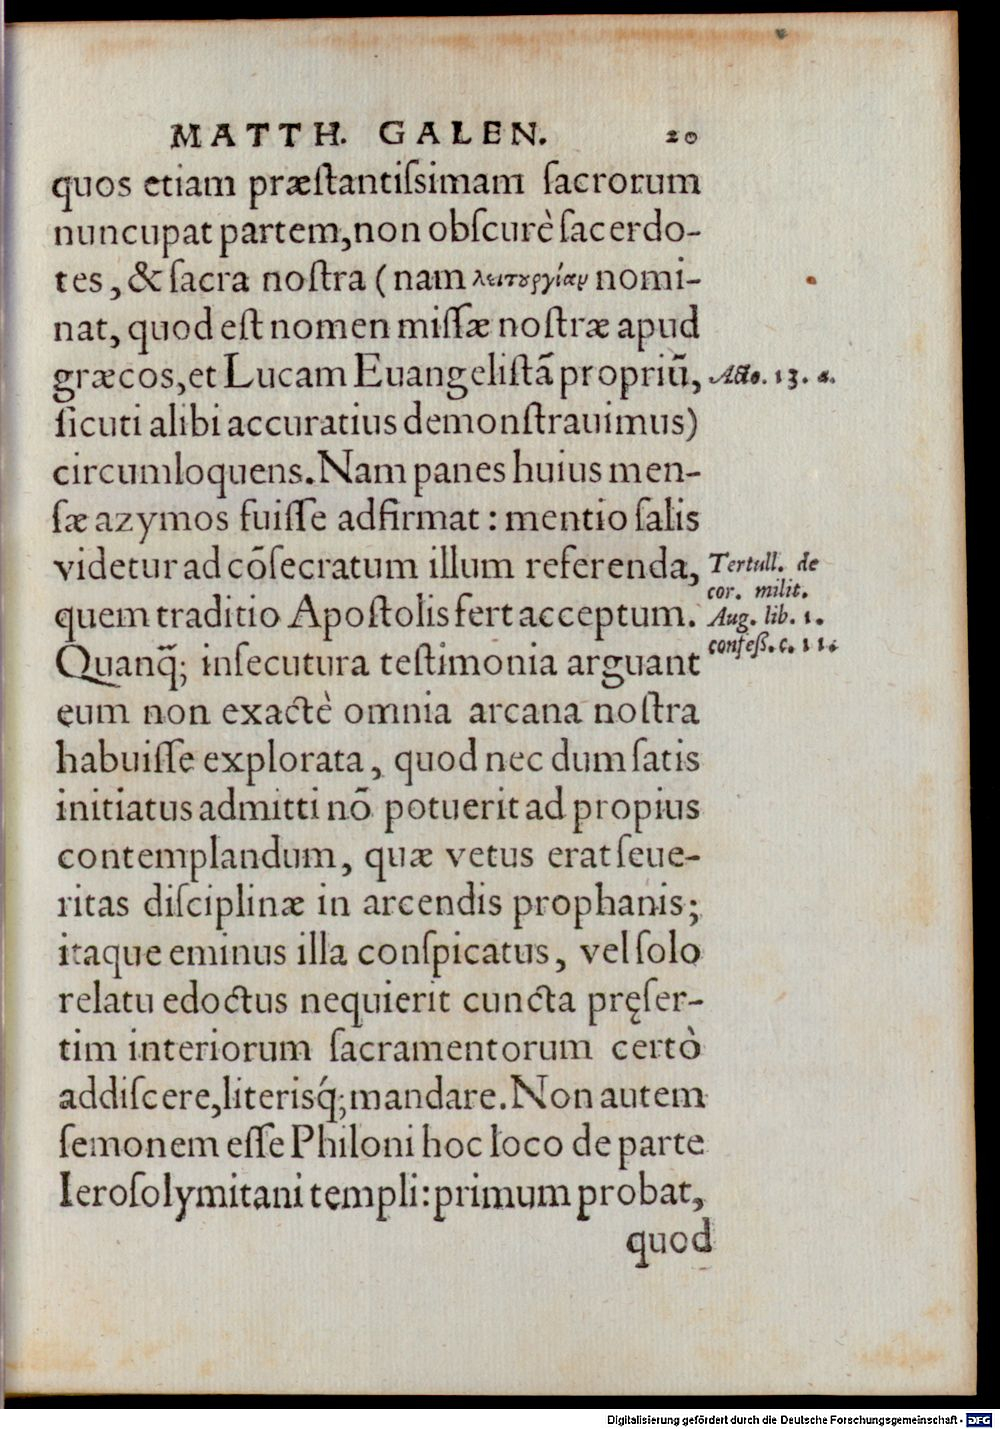 MATTH. GALEN. 20
quos etiam præſtantiſsimam ſacrorum
nuncupat partem, non obſcurè ſacerdo-
tes, & ſacra noſtra (nam λειτουργίαν nomi-
nat, quod eſt nomen miſſæ noſtræ apud
græcos, et Lucam Euangeliſtā propriū,
Acto. 13. a.
ſicuti alibi accuratius demonſtrauimus)
circumloquens. Nam panes huius men-
ſæ azymos fuiſſe adfirmat: mentio ſalis
videtur ad cōſecratum illum referenda,
Tertull. de
cor. milit.
quem traditio Apoſtolis fert acceptum.
Aug. lib. 1.
confeß. c. 11.
Quanq̃; inſecutura teſtimonia arguant
eum non exactè omnia arcana noſtra
habuiſſe explorata, quod nec dum ſatis
initiatus admitti nō potuerit ad propius
contemplandum, quæ vetus erat ſeue-
ritas diſciplinæ in arcendis prophanis;
itaque eminus illa conſpicatus, vel ſolo
relatu edoctus nequierit cuncta pręſer-
tim interiorum ſacramentorum certò
addiſcere, literisq́; mandare. Non autem
ſemonem eſſe Philoni hoc loco de parte
Ieroſolymitani templi: primum probat,
quod
Digitalisierung gefördert durch die Deutsche Forschungsgemeinschaft - DFG